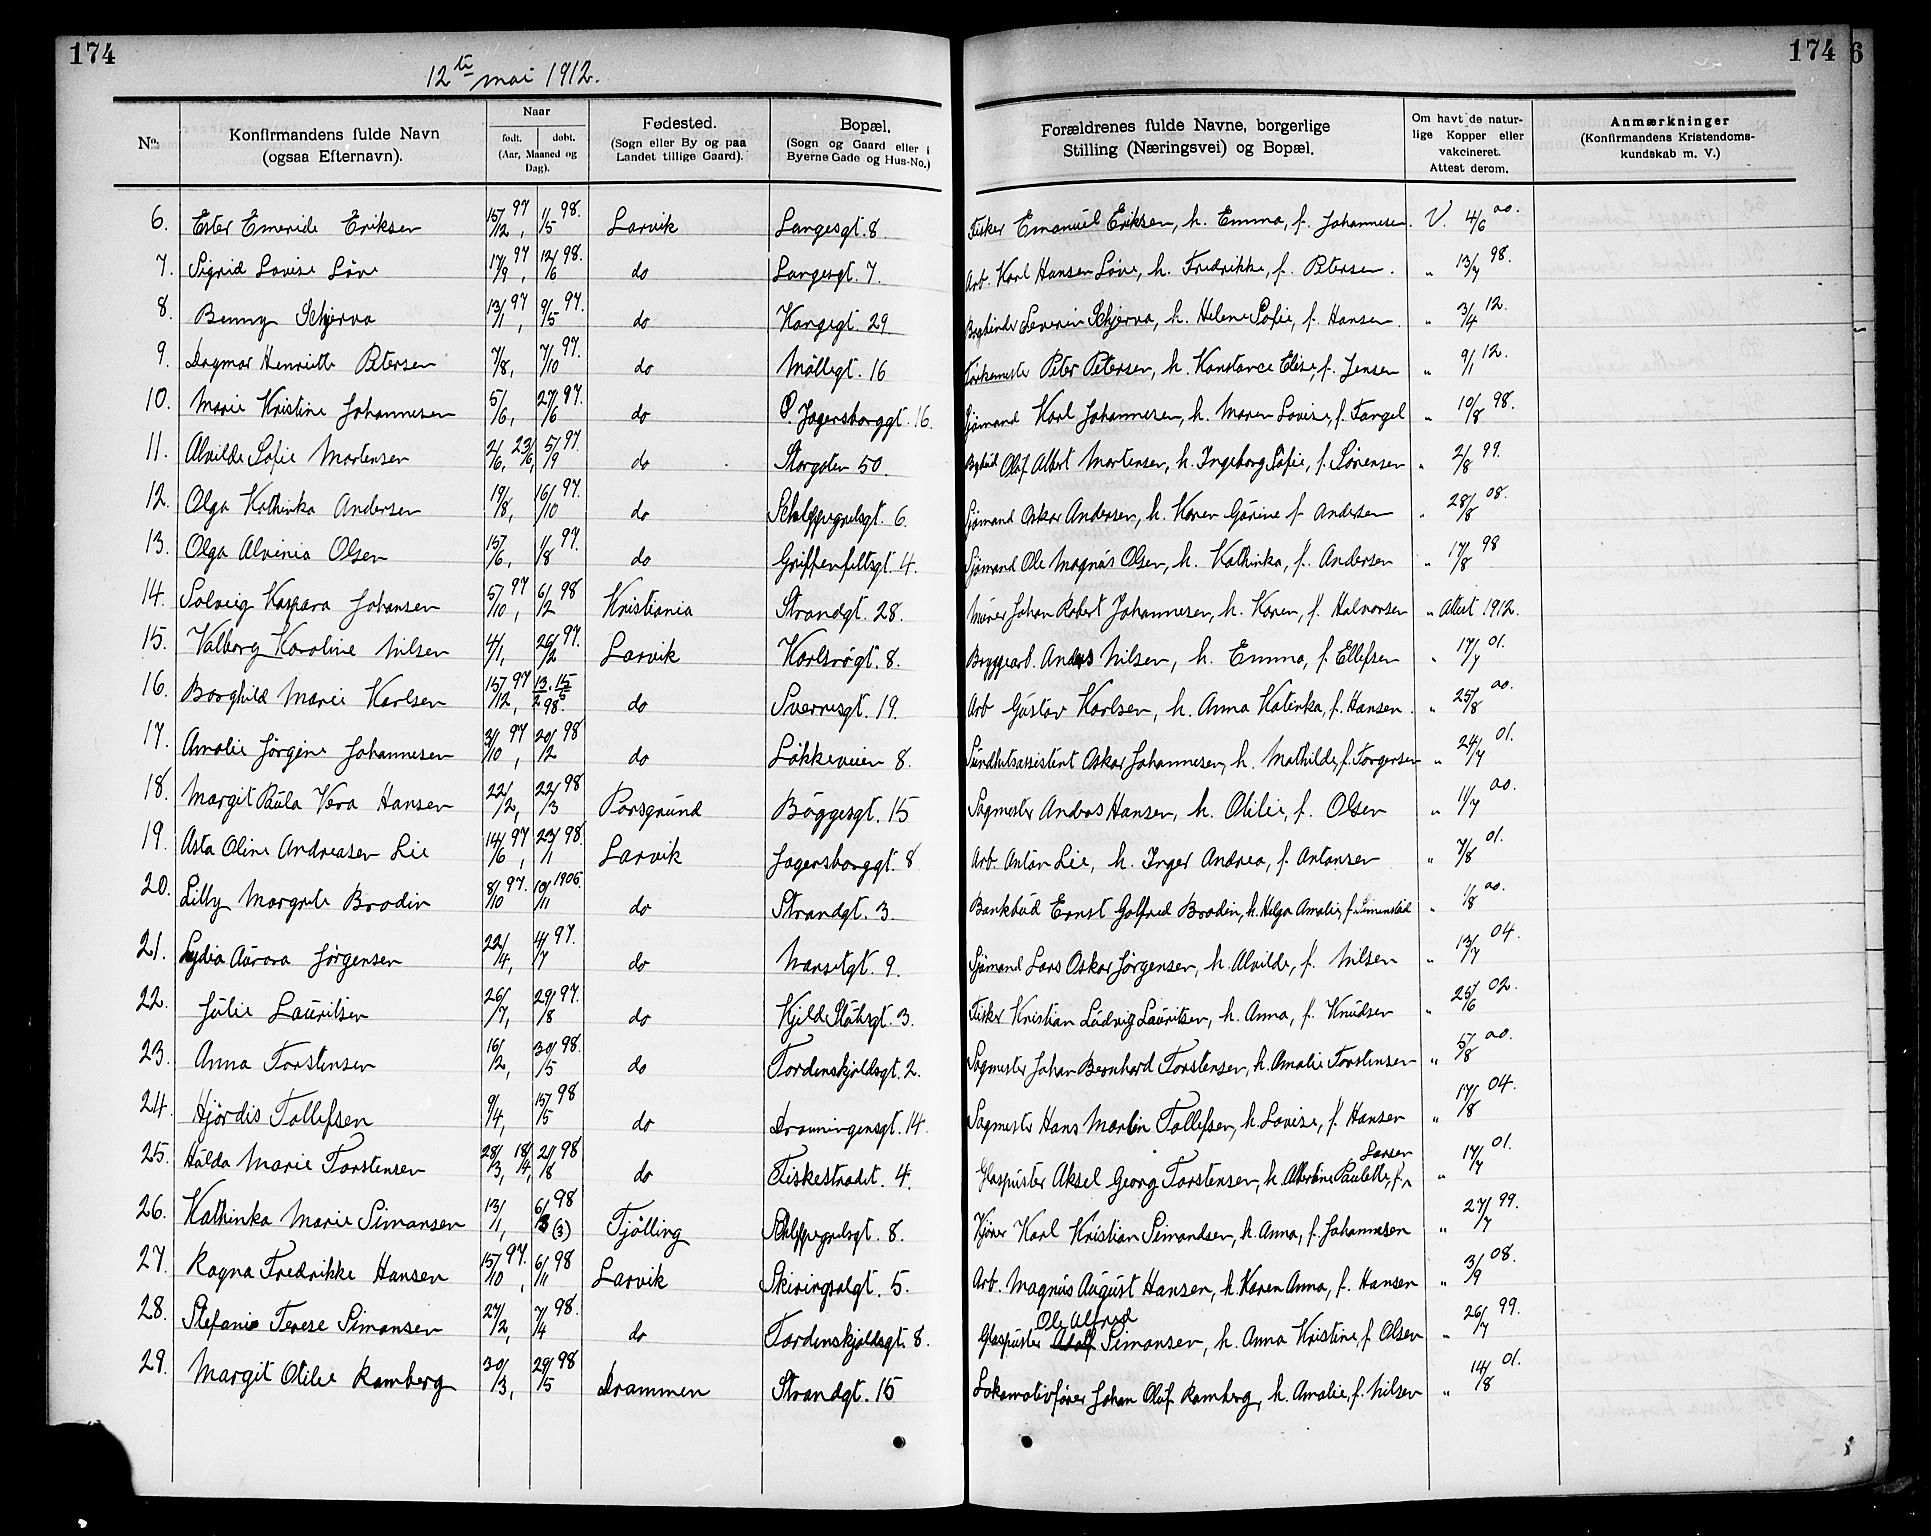 174
174
6
12te mai 1912.
No.
Konfirmandens fulde Navn (ogsaa Efternavn).
Naar
født.
døbt.
(Aar, Maaned og Dag).
Fødested.
(Sogn eller By og paa Landet tillige Gaard).
Bopæl.
(Sogn og Gaard eller i Byerne Gade og Hus-No.)
Forældrenes fulde Navne, borgerlige Stilling (Næringsvei) og Bopæl.
Om havt de naturlige Kopper eller vakcineret. Attest derom.
Anmærkninger
(Konfirmandens Kristendomskundskab m. V.)
6. Ester Emeride Eriksen 15/12 97, 1/5 98. Larvik Langesgt. 8. Fisker Emanuel Eriksen, h. Emma, f. Johannesen. V. 4/6 00.
7. Sigrid Lovise Löve 17/9 97, 12/6 98. do Langesgt. 7. Arb. Karl Hansen Löve, h. Fredrikke, f. Petersen. " 13/7 98.
8. Benny Schjerva 13/1 97, 9/5 97. do Kongegt. 29 Severin Schjerva, h. Helene Sofie, f. Hansen. " 3/4 12.
9. Dagmar Henriette Petersen 7/8, 7/10 97. do Möllegt. 16 Peter Petersen, h. Konstance Elise, f. Jensen " 9/1 12.
10. Marie Kristine Johannesen 5/6, 27/6 97. do Ø. Jagersborggt. 16. Sjömand Karl Johannesen, h. Maren Lovise, f. Tangel " 10/8 98.
11. Alvilde Sofie Mortensen 2/6, 23/6, 5/9 97. do Storgaten 50. Bybud Olaf Albert Mortensen, h. Ingeborg Sofie, f. Sörensen " 2/8 99.
12. Olga Kathinka Andersen 19/8, 16/10 97. do Schleppegrelsgt. 6. Sjömand Oskar Andersen, h. Karen Gurine f. Andersen " 28/8 08.
13. Olga Alvinia Olsen 15/6, 1/8 97. do Griffenfeltsgt. 4. Sjömand Ole Magnus Olsen, h. Kathinka, f. Andersen " 17/8 98
14. Solveig Kaspara Johansen 5/10 97, 6/2 98 Kristiania Strandgt. 28. Murer Johan Robert Johannesen, h. Karen, f. Halvorsen " Attest 1912.
15. Valborg Karoline Nilsen 4/1, 26/2 97. Larvik Karlsrogt. 8. Bryggearb. Anders Nilsen, h. Emma, f. Ellefsen " 17/7 01.
16. Borghild Marie Karlsen 15/12 97, 13/2 15/5 98. do Sverresgt. 19. Arb Gustav Karlsen, h. Anna Katinka, f. Hansen. " 25/8 00.
17. Amalie Jörgine Johannesen 3/10 97, 20/2 98 do Lökkeveien 8. Sundhetsassistent Oskar Johannesen, h. Mathilde, f. Torgersen " 24/7 01.
18. Margit Paula Vera Hansen 22/2, 22/3 98 Porsgrund Böggesgt. 15 Sagmester Andras Hansen, h. Otilie, f. Olsen " 11/7 00.
19. Asta Oline Andreasen Lie 14/6 97, 23/1 98. Larvik Jagersborggt. 8 Arb. Anton Lie, h. Inger Andrea, f. Antonsen " 7/8 01.
20. Lilly Margrete Brodin 8/10 97. 10/11 1906. do Strandgt. 3. Bankbud Ernst Golfred Brodin, h. Helga Amalie, f. Simenstad " 1/8 00.
21. Lydia Aurora Jörgensen 22/4, 4/7 97. do Nansetgt. 9. Sjömand Lars Oskar Jörgensen, h. Alvilde, f. Nilsen " 13/7 04.
22. Julie Lauritsen 26/7, 29/8 97. do Kjeld Stubsgt. 3. Fisker Kristian Ludvig Lauritsen, h. Anna, f. Knudsen " 25/6 02.
23. Anna Torstensen 16/2, 30/5 98. do Tordenskjoldsgt. 2. Sagmester Johan Bernhard Torstensen, h. Amalie Torstensen " 5/8 00.
24. Hjördis Tollefsen 9/4, 15/5 98 do Dronningensgt. 14. Sagmester Hans Martin Tollefsen, h. Lovise, f. Hansen " 17/8 04.
25. Hulda Marie Torstensen 28/3, 18/4, 21/8 98 do Fiskestradet. 4. Glaspuster Aksel Georg Torstensen, h. Albertine Paulette, f. Larsen " 17/7 01.
26. Kathinka Marie Simonsen 13/1, 6/3 98 (3) Tjölling Schleppegrelsgt. 8. Kjörer Karl Kristian Simondsen, h. Anna, f. Johannesen " 27/7 99.
27. Ragna Fredrikke Hansen 15/10 97. 6/11 98 Larvik Skiringsalgt. 5. Arb. Magnus August Hansen, h. Karen Anna, f. Hansen " 3/9 08.
28. Stefanie Terese Simonsen 27/2, 7/4 98. do Tordenskjoldsgt. 8. Glaspuster Ole Alfred Adolf Simonsen, h. Anna Kristine, f. Olsen " 26/7 99.
29. Margit Otilie Ramberg 30/3, 29/5 98 Drammen Strandgt. 15 Lokomotivförer Johan Oluf Ramberg, h. Amalie, f. Nilsen " 14/8 01.